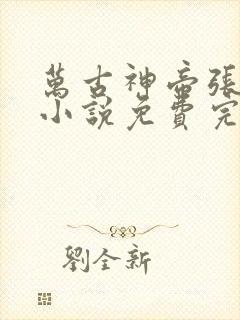 萬古神帝張
小說免費完
劉全新